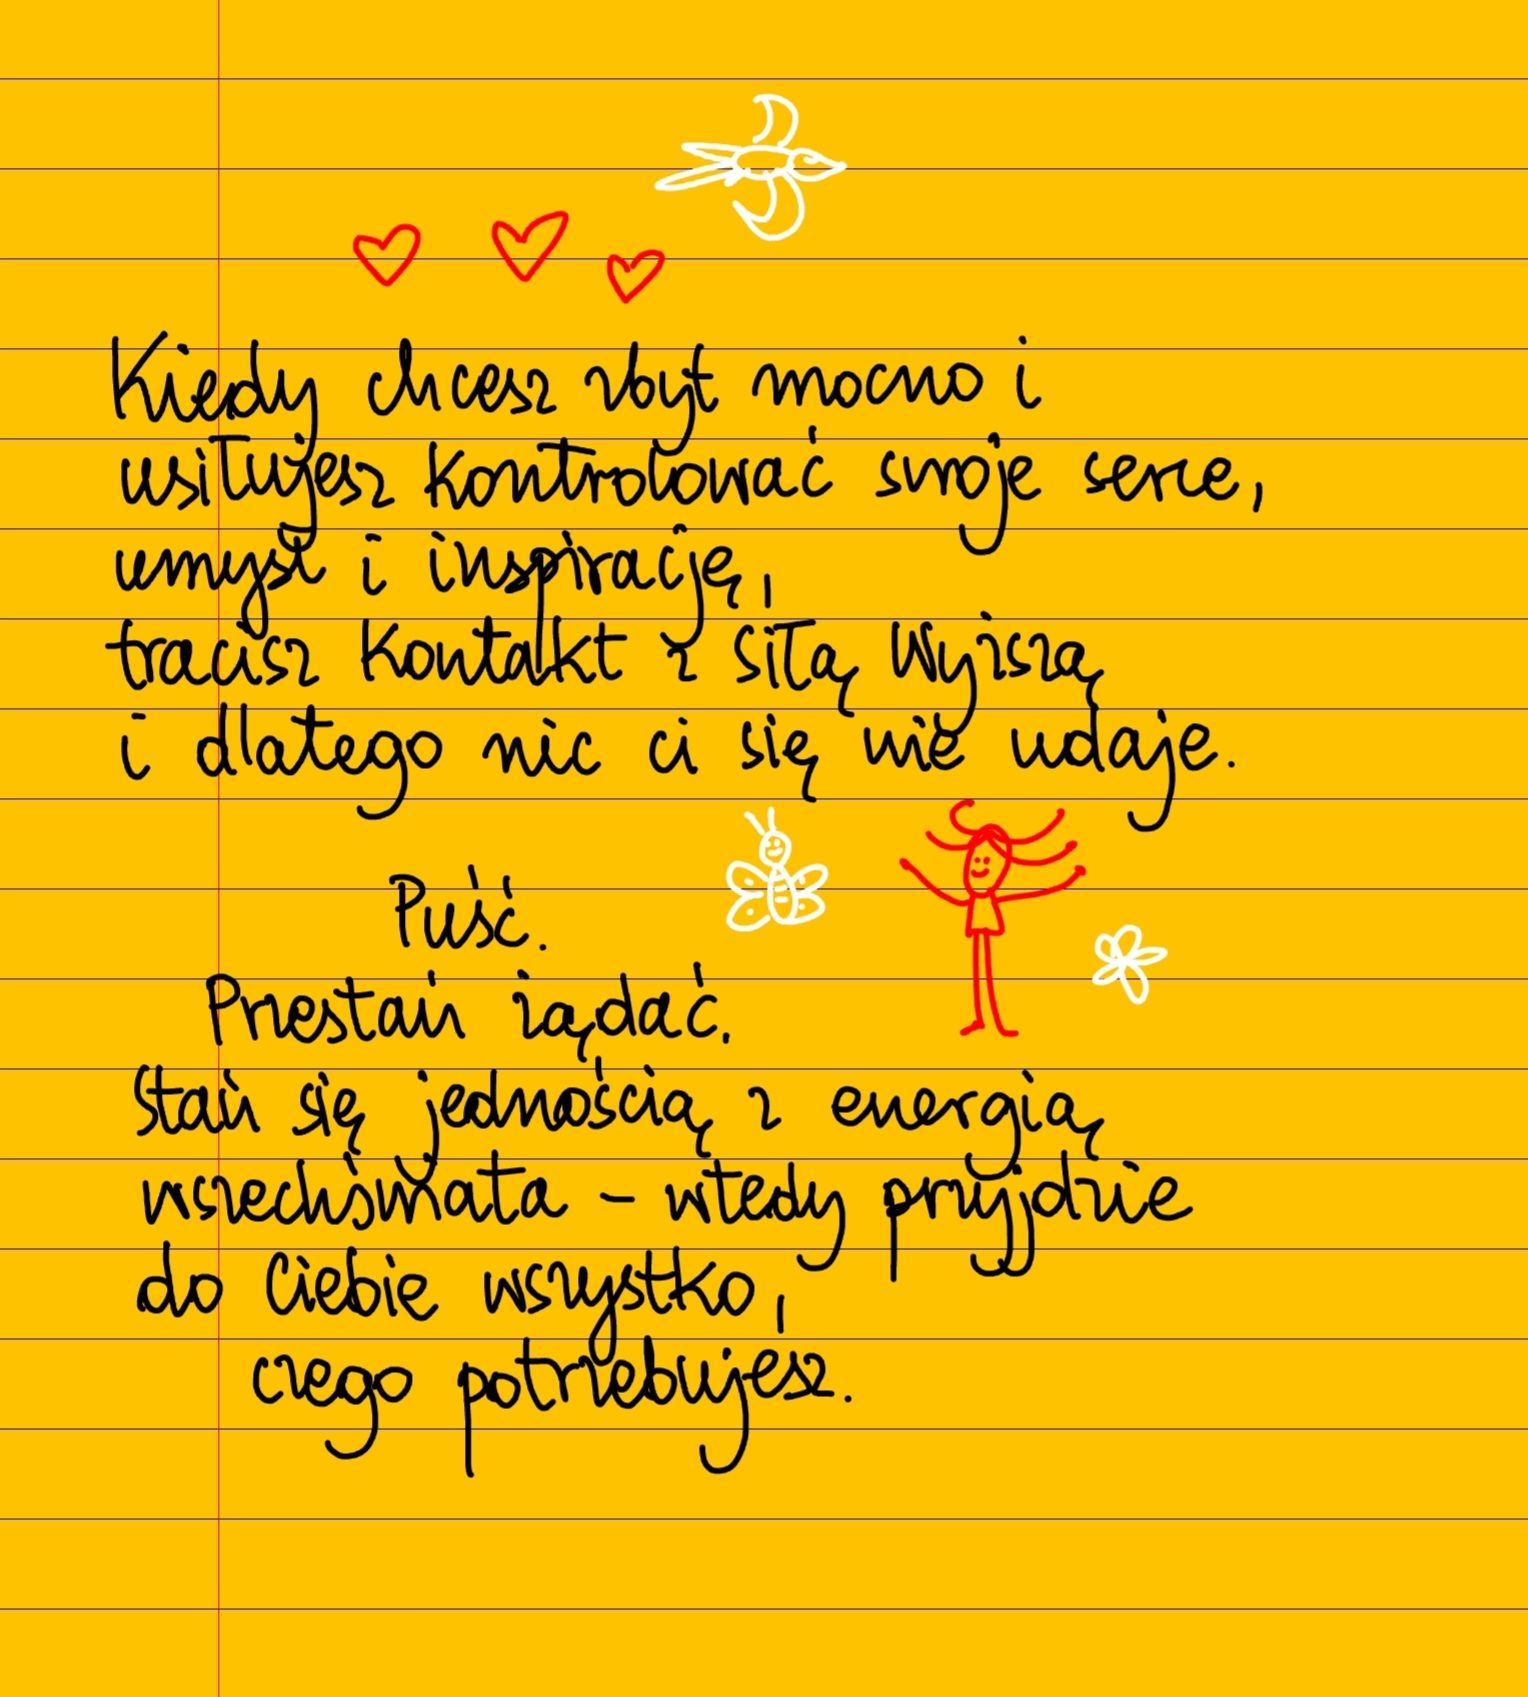 Kiedy chcesz zbyt mocno i
usiłujesz kontrolować swoje serce,
umysł i inspirację,
tracisz kontakt z siłą wyższą
i dlatego nic ci się nie udaje.
Puść.
Przestań żądać.
Stań się jednością z energią
wszechświata - wtedy przyjdzie
do Ciebie wszystko,
czego potrzebujesz.